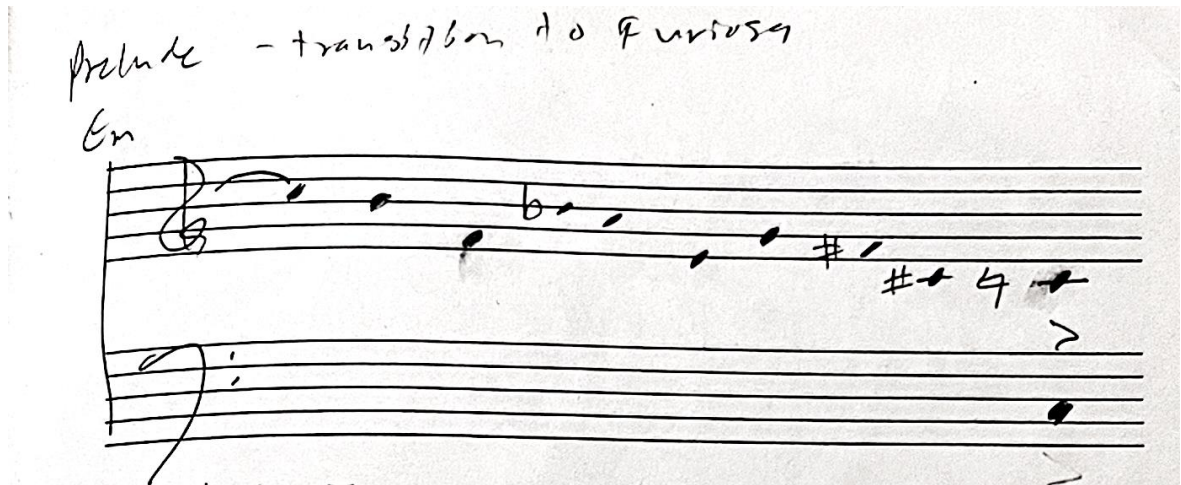 Prelude - transition to Furiosa
Em